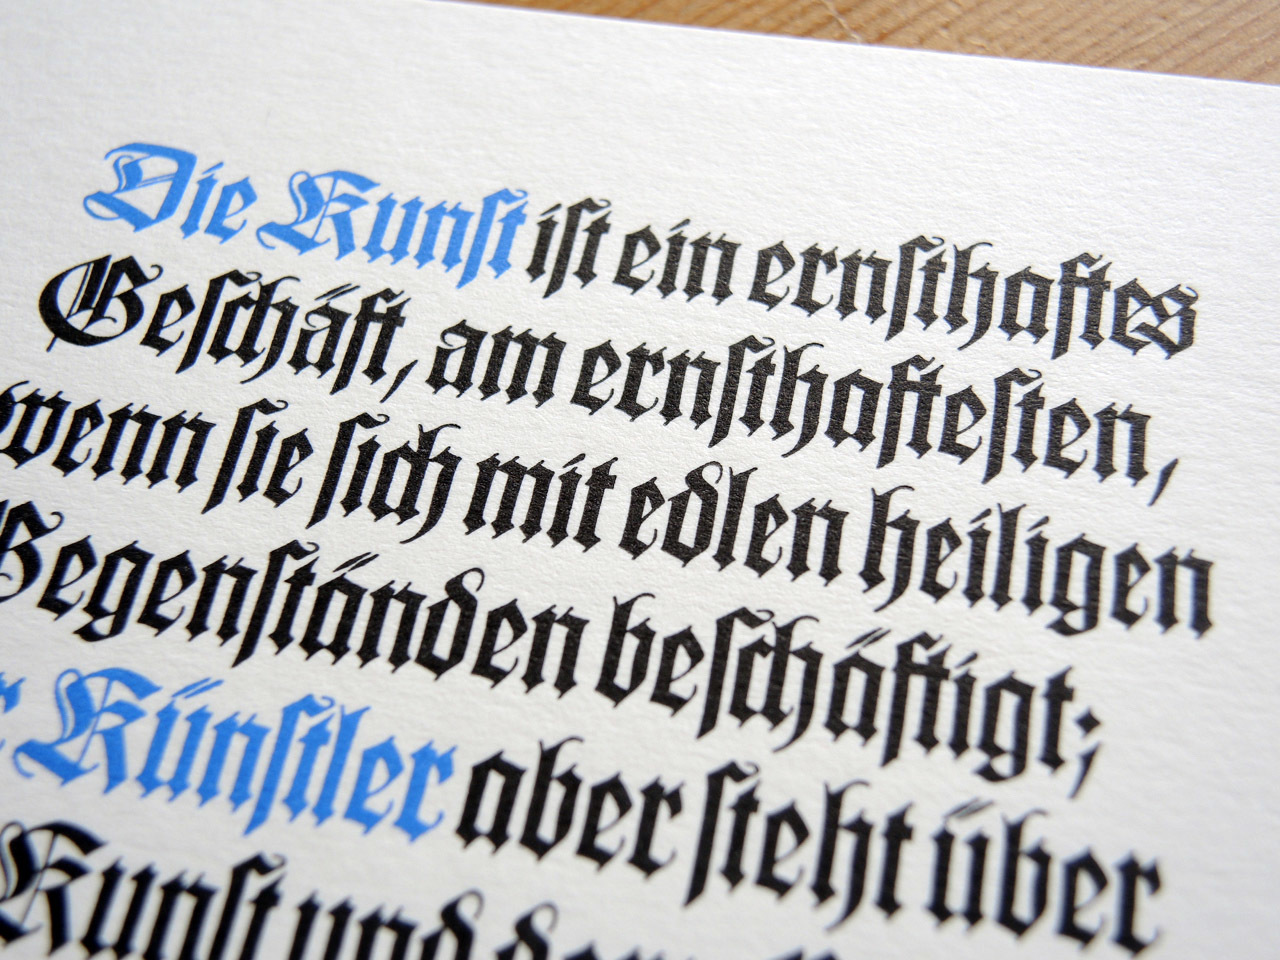 Die Kunſt iſt ein ernſthaftes
Geſchäft, am ernſthafteſten,
wenn ſie ſich mit edlen heiligen
Gegenſtänden beſchäftigt;
Künſtler aber ſteht über
Kunſt und